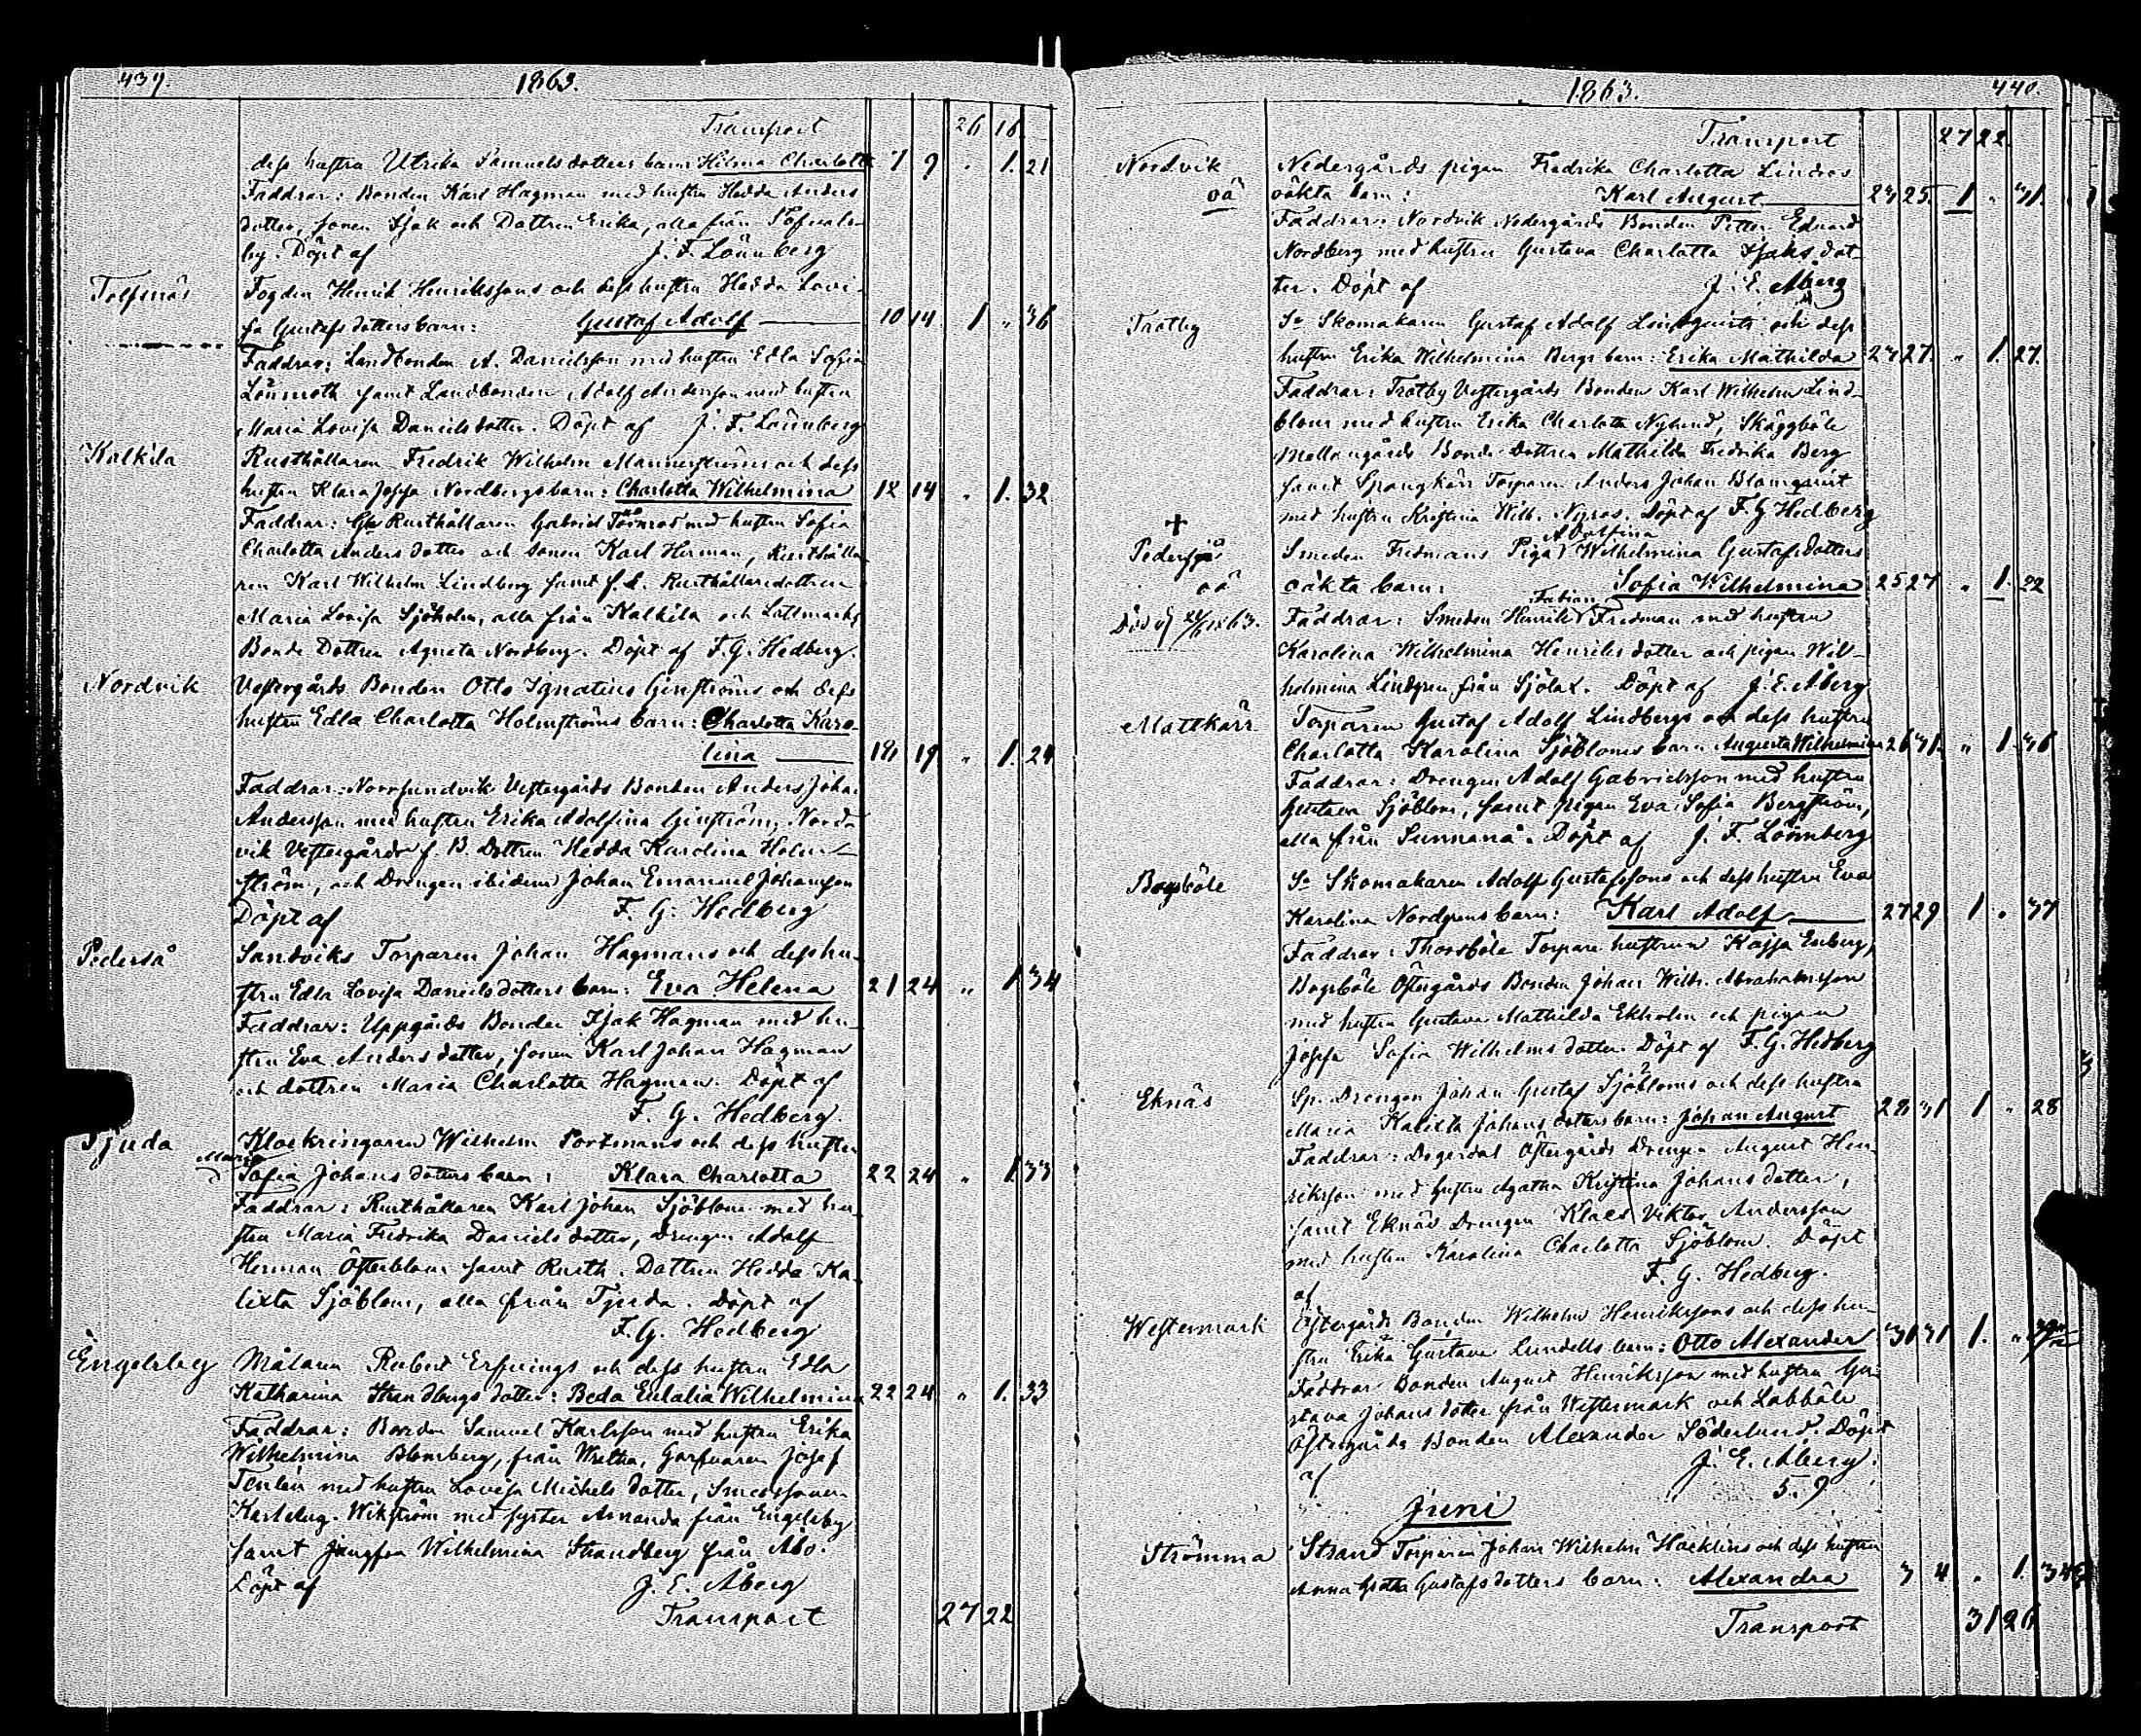 439. 1863.
Transport 26 18.
dess hustru Utrika Samuelsdotters barn: Hilma Charlotta 7 9 " 1. 21
Faddrar: Bonden Karl Hagman med hustru Hedda Anders
dotter, sonen Isak och Dottren Erika, alla från
by. Döpt af J. F. Lönnberg
Tolfsnäs Fogden Henrik Henrikssons och dess hustru Hedda Lovi-
sa Gustafsdotters barn: Gustaf Adolf 10 14 1 " 36
Faddrar: Landbonden A. Danielsson med hustru Edla Sofia
Lönnroth samt Landbonden Adolf Andersson med hustru
Maria Lovisa Danielsdotter. Döpt af J. F. Lönnberg
Kalkila Rusthållaren Fredrik Wilhelm Mannerströms och dess
hustru Klara Josefa Nordbergs barn: Charlotta Wilhelmina 12 14 " 1. 32
Faddrar: Rusthållaren Gabriel Törnroos med hustru Sofia
Charlotta Andersdotter och sonen Karl Herman, Rusthålla
ren Karl Wilhelm Lindberg samt f. d. Rusthållaredottren
Maria Lovisa Sjöholm, alla från Kalkila och Lattmarks
Bonde Dottren Agneta Nordberg. Döpt af F. G. Hedberg.
Nordvik Vestergårds Bonden Otto Ignatius Ginströms och dess
hustru Edla Charlotta Holmströms barn: Charlotta Karo-
lina 18 19 " 1. 24
Faddrar: Norrsundvik Vestergårds Bonden Anders Johan
Andersson med hustru Erika Adolfina Ginström, Nord-
vik Vestergårds f. B. Dottren Hedda Karolina Holm-
ström, och Drengen ibidem Johan Emanuel Johansson
Döpt af F. G. Hedberg
Pederså Sandviks Torparen Johan Hagmans och dess hu-
stru Edla Lovisa Danielsdotters barn: Eva Helena 21 24 " 1 34
Faddrar: Uppgårds Bonden Isak Hagman med hu-
stru Eva Andersdotter, sonen Karl Johan Hagman
och dottren Maria Charlotta Hagman. Döpt af
F. G. Hedberg.
Tjuda Klockringaren Wilhelm Portmans och dess hustru
Maria
Sofia Johansdotters barn: Klara Charlotta 22 24 " 1 33
Faddrar: Rusthållaren Karl Johan Sjöblom med hu-
stru Maria Fredrika Danielsdotter, Drengen Adolf
Herman Österblom samt Rusth. Dottren Hedda Ka-
lixta Sjöblom, alla från Tjuda. Döpt af
F. G. Hedberg
Engelsby Målaren Robert Erfvings och dess hustru Edla
Katharina Strandbergs dotter: Beda Eulalia Wilhelmina 22 24 " 1. 33
Faddrar: Bonden Samuel Karlsson med hustru Erika
Wilhelmina Blomberg, från Wretha, Garfvaren Josef
Tenlén med hustru Lovisa Michelsdotter, Smedssonen
Karl Aug. Wikström med syster Amanda från Engelsby
samt jungfru Wilhelmina Strandberg från Åbo.
Döpt af J. E. Åberg
Transport 27 22
1863. 440.
Transport 27 22.
Nordvik Nedergårds pigan Fredrika Charlotta Lindros
oä oäkta barn: Karl August 24 25. 1 " 31.
Faddrar: Nordvik Nedergårds Bonden Petter Eduard
Nordberg med hustru Gustava Charlotta Isaksdot-
ter. Döpt af J. E. Åberg
Trotby Sn Skomakaren Gustaf Adolf Lindqvists och dess
hustru Erika Wilhelmina Bergs barn: Erika Mathilda 24 27. " 1. 27.
Faddrar: Trotby Vestergårds Bonden Karl Wilhelm Lind-
blom med hustru Erika Charlotta Nylund, Skäggböle
Mellangårds Bonde Dottren Mathilda Fredrika Berg
samt Spångkärr Torparen Anders Johan Blomqvist
med hustru Kristina Wilh. Nyros. Döpt af F. G Hedberg
+
Adolfina
Pederså Smeden Fredmans Piga Wilhelmina Gustafsdotters
oä oäkta barn: Sofia Wilhelmina 25 27 " 1. 22
Fabian
Död 24/6 1863. Faddrar: Smeden Henrik Fredman med hustru
Karolina Wilhelmina Henriksdotter och pigan Wil-
helmina Lindgren från Sjölax. Döpt af J. E. Åberg
Mattkärr Torparen Gustaf Adolf Lindbergs och dess hustru
Charlotta Karolina Sjöbloms barn Augusta Wilhelmina 26 31. " 1. 36
Faddrar: Drengen Adolf Gabrielsson med hustru
Gustava Sjöblom, samt pigan Eva Sofia Bergström,
alla från Sunnanå. Döpt af J. F. Lönnberg
Bogsböle Sn Skomakaren Adolf Gustafssons och dess hustru Eva
Karolina Nordgrens barn: Karl Adolf 27 29 1 " 37
Faddrar: Thorsböle Torpare hustrun Kajsa Enberg,
Bogsböle Östergårds Bonden Johan Wilh. Abrahamsson
med hustru Gustava Mathilda Ekholm och pigan
Josefa Sofia Wilhelmsdotter. Döpt af F. G. Hedberg
Eknäs Sp. Drengen Johan Gustaf Sjöbloms och dess hustru
Maria Kalixta Johansdotters barn: Johan August 28 31 1 " 28
Faddrar: Dogerdal Östergårds Drengen August Hen-
riksson med hustru Agatha Kristina Johansdotter,
samt Eknäs Drengen Klaes Viktor Andersson
med hustru Karolina Charlotta Sjöblom. Döpt
af F. G. Hedberg.
Westermark Östergårds Bonden Wilhelm Henrikssons och dess hu-
stru Erika Gustava Lundells barn: Otto Alexander 31 31 1. "
Faddrar Bonden August Henriksson med hustru Gu-
stava Johansdotter från Westermark och Labböle
Östergårds Bonden Alexander Söderlund. Döpt
af J. E. Åberg.
5. 9
Juni
Strömma Strand Torparen Johan Wilhelm Hacklins och dess hustru
Anna Greta Gustafsdotters barn: Alexandra 3 4 " 1.
Transport 31 26